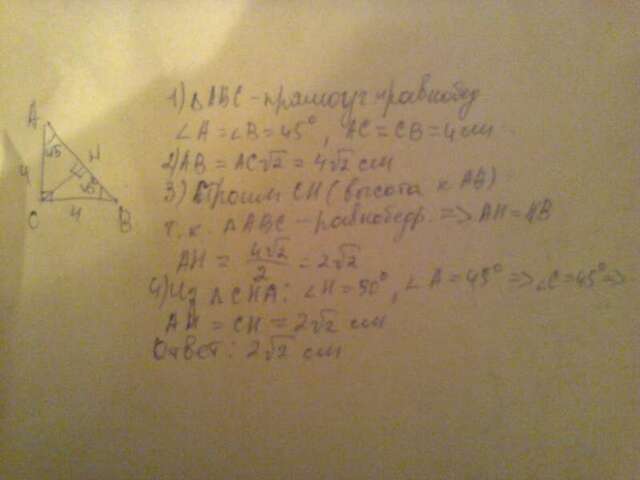 1) △ABC - прямоуг. равнобед
∠A = ∠B = 45°, AC = CB = 4 см
2) AB = AC√2 = 4√2 см
3) Строим CH (высота к AB)
т.к. △ABC - равнобедр. => AH = HB
AH = 4√2/2 = 2√2
4) Из △CHA: ∠H = 90°, ∠A = 45° => ∠C = 45° =>
AH = CH = 2√2 см
Ответ: 2√2 см
A
45
H
4
45
C
4
B